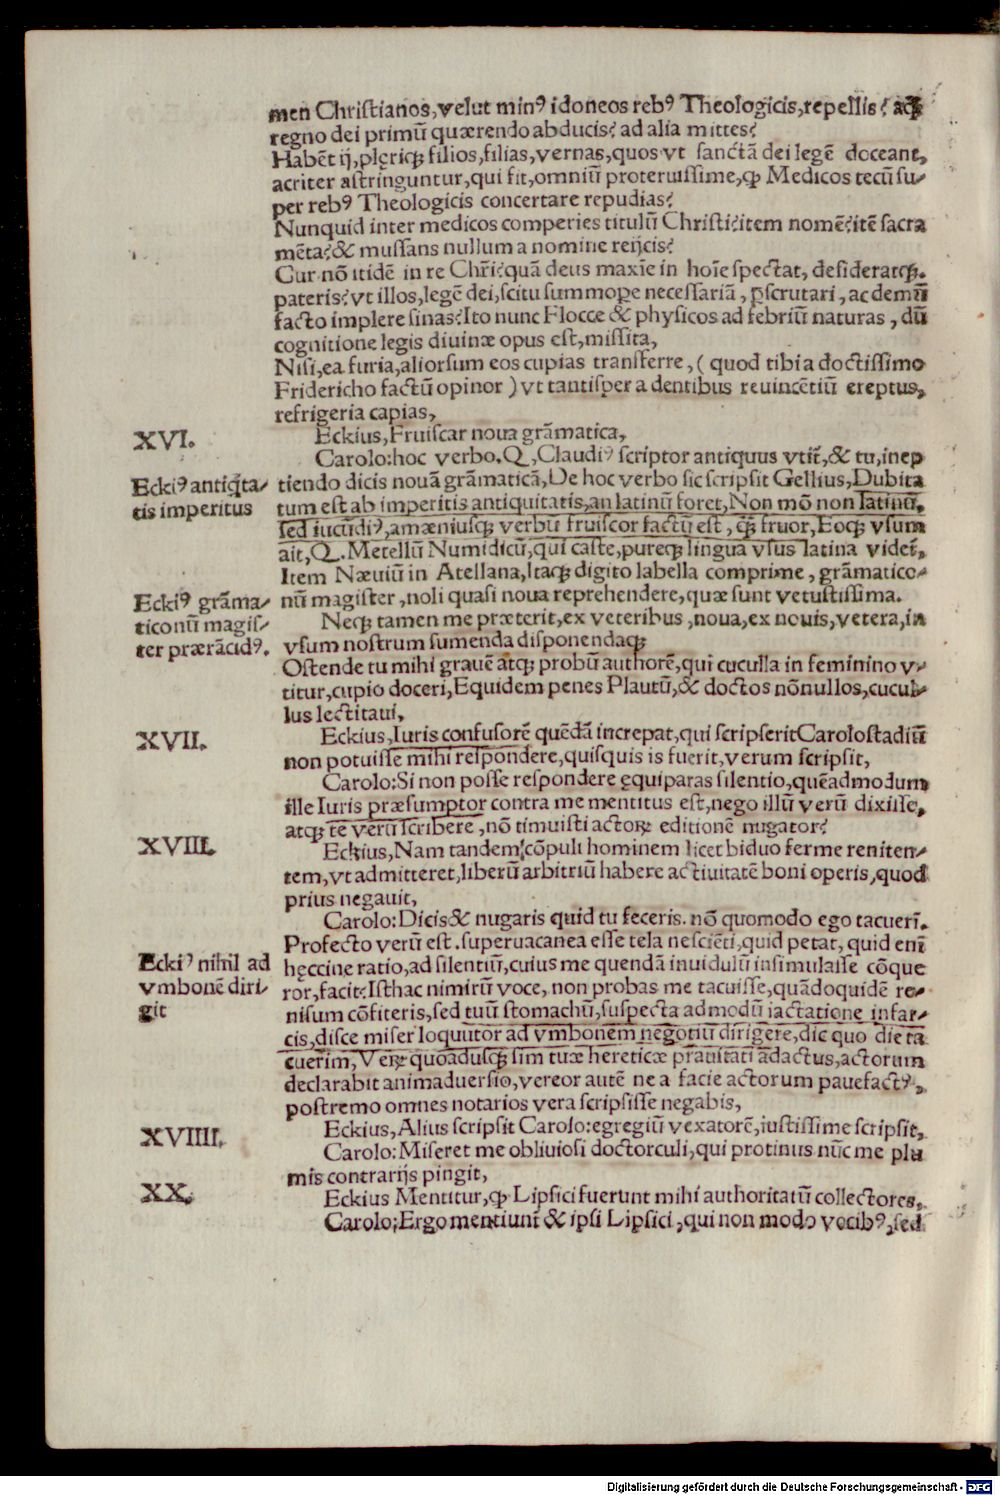 men Christianos, velut minꝰ idoneos rebꝰ Theologicis, repellis? acꝗ
regno dei primū quærendo abducis? ad alia mittes?
Habēt ij, pleriqꝫ filios, filias, vernas, quos vt sanctā dei legē doceant,
acriter astringuntur, qui fit, omniū proteruissime, ꝙ Medicos tecū su⸗
per rebꝰ Theologicis concertare repudias?
Nunquid inter medicos comperies titulū Christi? item nomē? itē sacra
mēta? & mussans nullum a nomine reijcis?
Cur nō itidē in re Chr̄i? quā deus maxīe in hoīe spectat, desideratqꝫ.
pateris? vt illos, legē dei, scitu summoꝑe necessariā, ꝑscrutari, ac demū
facto implere sinas? Ito nunc Flocce & physicos ad febriū naturas, dū
cognitione legis diuinæ opus est, missita,
Nisi, ea furia, aliorsum eos cupias transferre, ( quod tibi a doctissimo
Fridericho factū opinor ) vt tantisper a dentibus reuincētiū ereptus,
refrigeria capias,
XVI. Eckius, Fruiscar noua grāmatica,
Carolo: hoc verbo. Q, Claudiꝰ scriptor antiquus vtit̄, & tu, inep
Eckiꝰ antiq̄ta⸗
tis imperitus
tiendo dicis nouā grāmaticā, De hoc verbo sic scripsit Gellius, Dubita
tum est ab imperitis antiquitatis, an latinū foret, Non mō non latinū,
sed iucūdiꝰ, amæniusqꝫ verbū fruiscor factū est, q̄ꝫ fruor, Eoqꝫ vsum
ait, Q. Metellū Numidicū, qui caste, pureqꝫ lingua vsus latina videt̄,
Item Næuiū in Atellana, Itaqꝫ digito labella comprime, grāmatico⸗
Eckiꝰ grāma⸗
ticonū magis⸗
ter prærācidꝰ.
nū magister, noli quasi noua reprehendere, quæ sunt vetustissima.
Neqꝫ tamen me præterit, ex veteribus, noua, ex nouis, vetera, in
vsum nostrum sumenda disponendaqꝫ
Ostende tu mihi grauē atqꝫ probū authorē, qui cuculla in feminino v⸗
titur, cupio doceri, Equidem penes Plautū, & doctos nōnullos, cucul⸗
lus lectitaui,
XVII. Eckius, Iuris confusorē quēdā increpat, qui scripserit Carolostadiū
non potuisse mihi respondere, quisquis is fuerit, verum scripsit,
Carolo: Si non posse respondere ęquiparas silentio, quēadmodum
ille Iuris præsumptor contra me mentitus est, nego illū verū dixisse,
atqꝫ te verū scribere, nō timuisti actoꝝ editionē nugator?
XVIII. Eckius, Nam tandem cōpuli hominem licet biduo ferme reniten⸗
tem, vt admitteret, liberū arbitriū habere actiuitatē boni operis, quod
prius negauit,
Carolo: Dicis & nugaris quid tu feceris. nō quomodo ego tacuerī.
Profecto verū est. superuacanea esse tela nesciēti, quid petat, quid enī
Eckiꝰ nihil ad
vmbonē diri⸗
git
hęccine ratio, ad silentiū, cuius me quendā inuidulū insimulasse cōque
ror, facit? Isthac nimirū voce, non probas me tacuisse, quādoquidē re⸗
nisum cōfiteris, sed tuū stomachū, suspecta admodū iactatione infar⸗
cis, disce miser loquutor ad vmbonem negotiū dirigere, dic quo die ta
cuerim, Veꝝ quoadusqꝫ sim tuæ hereticæ prauitati adactus, actorum
declarabit animaduersio, vereor autē ne a facie actorum pauefactꝰ,
postremo omnes notarios vera scripsisse negabis,
XVIIII. Eckius, Alius scripsit Carolo: egregiū vexatorē, iustissime scripsit,
Carolo: Miseret me obliuiosi doctorculi, qui protinus nūc me plu
mis contrarijs pingit,
XX. Eckius Mentitur, ꝙ Lipsici fuerunt mihi authoritatū collectores,
Carolo; Ergo mentiunt̄ & ipsi Lipsici, qui non modo vocibꝰ, sed
Digitalisierung gefördert durch die Deutsche Forschungsgemeinschaft - DFG